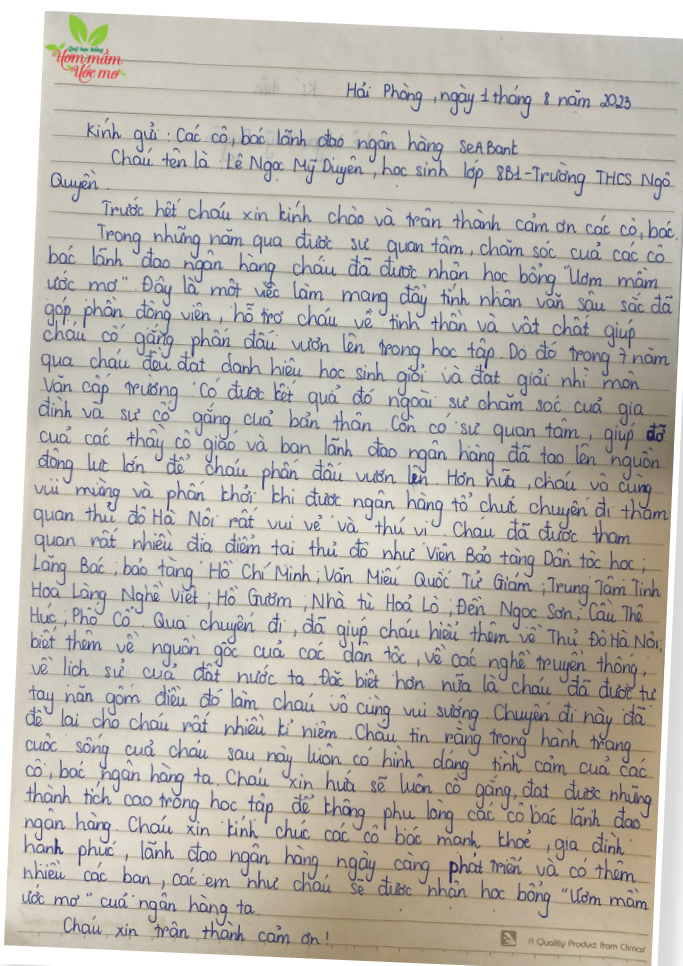 Quỹ học bổng
Ươm mầm
Ước mơ
Hải Phòng, ngày 1 tháng 8 năm 2023
Kính gửi: Các cô, bác lãnh đạo ngân hàng SeABank
Cháu tên là Lê Ngọc Mỹ Duyên, học sinh lớp 8B1-Trường THCS Ngô
Quyền.
Trước hết cháu xin kính chào và trân thành cảm ơn các cô, bác.
Trong những năm qua được sự quan tâm, chăm sóc của các cô
bác lãnh đạo ngân hàng cháu đã được nhận học bổng "Ươm mầm
ước mơ". Đây là một việc làm mang đầy tính nhân văn sâu sắc đã
góp phần động viên, hỗ trợ cháu về tinh thần và vật chất giúp
cháu cố gắng phấn đấu vươn lên trong học tập. Do đó trong 7 năm
qua cháu đều đạt danh hiệu học sinh giỏi và đạt giải nhì môn
Văn cấp trường. Có được kết quả đó ngoài sự chăm sóc của gia
đình và sự cố gắng của bản thân. Còn có sự quan tâm, giúp đỡ
của các thầy cô giáo và ban lãnh đạo ngân hàng đã tạo lên nguồn
động lực lớn để cháu phấn đấu vươn lên. Hơn nữa, cháu vô cùng
vui mừng và phấn khởi khi được ngân hàng tổ chức chuyến đi thăm
quan thủ đô Hà Nội rất vui vẻ và thú vị. Cháu đã được tham
quan rất nhiều địa điểm tại thủ đô như Viện Bảo tàng Dân tộc học;
Lăng Bác; bảo tàng Hồ Chí Minh; Văn Miếu Quốc Tử Giám; Trung Tâm Tinh
Hoa Làng Nghề Việt; Hồ Gươm; Nhà tù Hoả Lò; Đền Ngọc Sơn; Cầu Thê
Húc; Phố Cổ. Qua chuyến đi, đã giúp cháu hiểu thêm về Thủ Đô Hà Nội,
biết thêm về nguồn gốc của các dân tộc, về các nghề truyền thống,
về lịch sử của đất nước ta. Đặc biệt hơn nữa là cháu đã được tự
tay nặn gốm điều đó làm cháu vô cùng vui sướng. Chuyến đi này đã
để lại cho cháu rất nhiều kỉ niệm. Cháu tin rằng trong hành trang
cuộc sống của cháu sau này luôn có hình dáng tình cảm của các
cô, bác ngân hàng ta. Cháu xin hứa sẽ luôn cố gắng, đạt được những
thành tích cao trong học tập để không phụ lòng các cô bác lãnh đạo
ngân hàng. Cháu xin kính chúc các cô bác mạnh khoẻ, gia đình
hạnh phúc, lãnh đạo ngân hàng ngày càng phát triển và có thêm
nhiều các bạn, các em như cháu sẽ được nhận học bổng "Ươm mầm
ước mơ" của ngân hàng ta.
Cháu xin trân thành cảm ơn!
A Quality Product from Climax